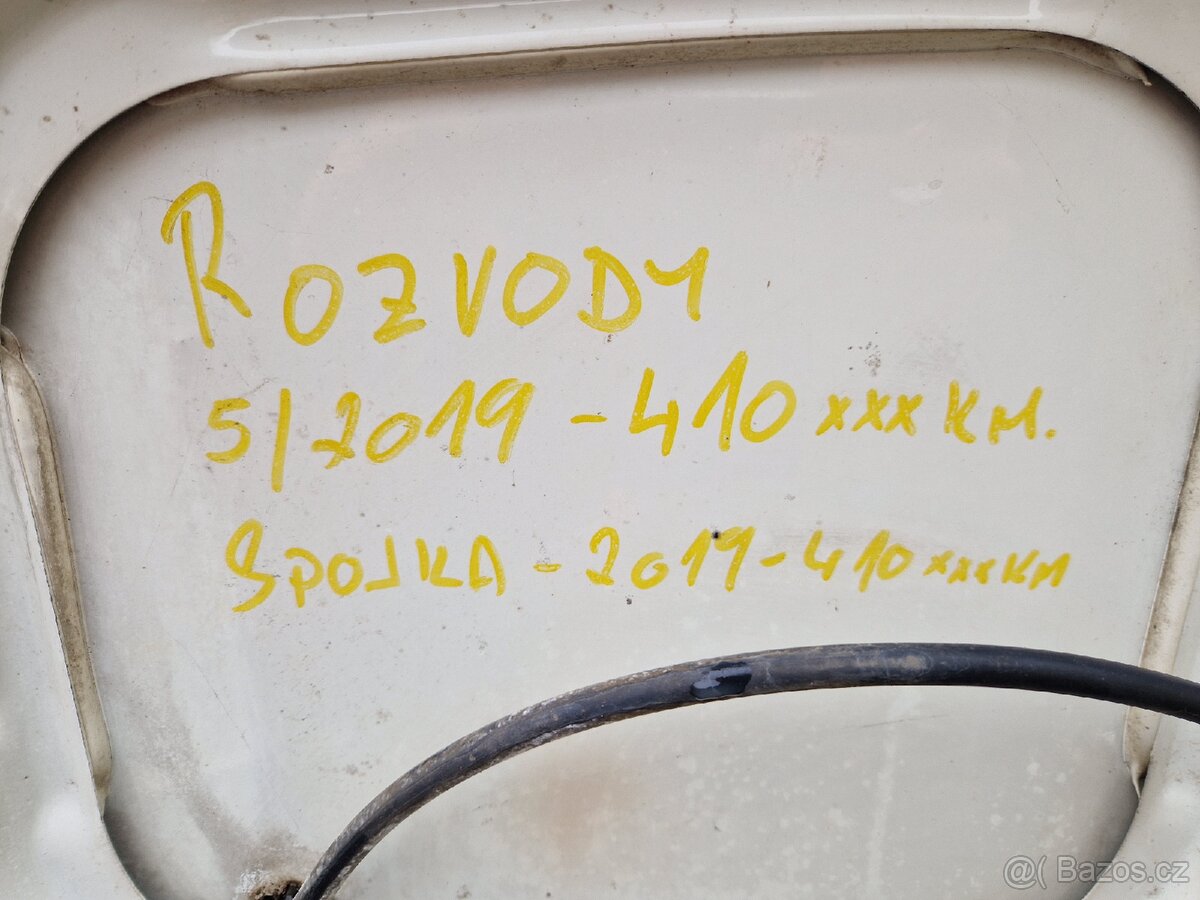 ROZVODY
5/2019 - 410xxx KM.
SPOJKA - 2019 - 410xxx KM
@( Bazos.cz